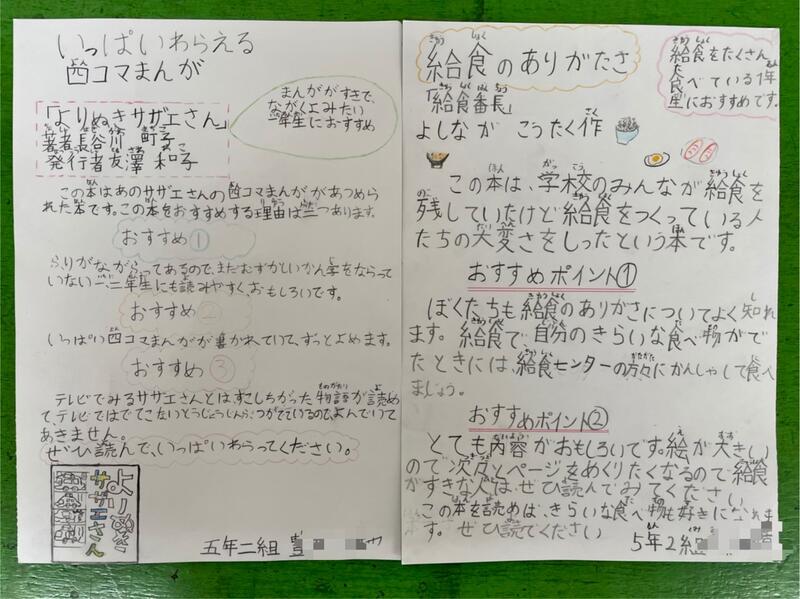 いっぱいわらえる
四コマまんが
まんががすきで、
ながくよみたい
二年生におすすめ
「よりぬきサザエさん」
著者 長谷川 町子
発行者 友澤 和子
この本はあのサザエさんの四コマまんががあつめら
れた本です。この本をおすすめする理由は三つあります。
おすすめ①
ふりがながふってあるので、まだむずかしいかん字をならって
いない一、二年生にも読みやすく、おもしろいです。
おすすめ②
いっぱい四コマまんがが書かれていて、ずっとよめます。
おすすめ③
テレビでみるサザエさんとはすこしちがった物語が読め
て、テレビではでてこないとうじょうじんぶつがでているので、よんでいて
あきません。
ぜひ読んで、いっぱいわらってください。
よりぬき
サザエさん
五年二組 豊
給食のありがたさ
給食をたくさん
食べている1年
生におすすめです。
「給食番長」
よしなが こうたく作
この本は、学校のみんなが給食を
残していたけど給食をつくっている人
たちの大変さをしったという本です。
おすすめポイント①
ぼくたちも給食のありがさについてよく知れ
ます。給食で、自分のきらいな食べ物がで
たときには、給食センターの方々にかんしゃして食べ
ましょう。
おすすめポイント②
とても内容がおもしろいです。絵が大きい
ので次々とページをめくりたくなるので給食
がすきな人は、ぜひ読んでみてください
この本を読めば、きらいな食べ物も好きになれま
す。ぜひ読でください
5年2組